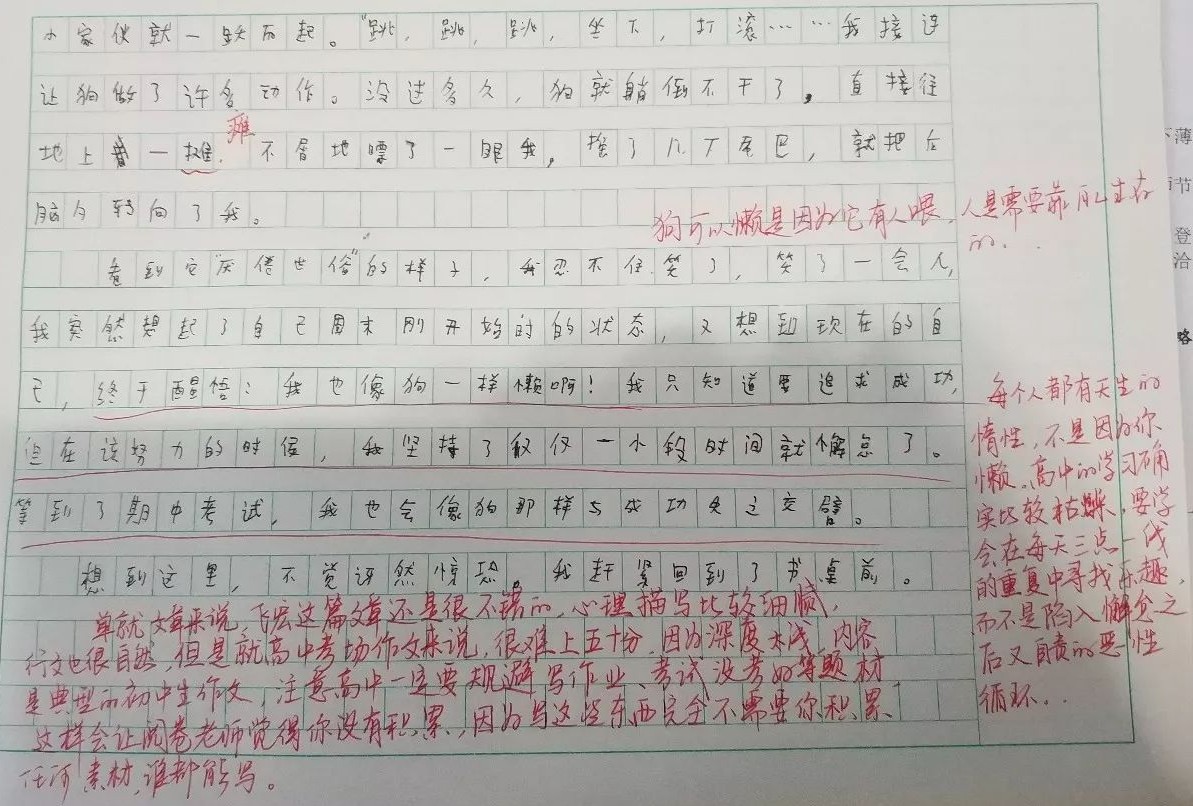 小家伙就一跃而起。"跳,跳,跳,坐下,打滚……我接连
让狗做了许多动作。没过多久,狗就躺倒不干了。直接往
瘫
地上一摊,不屑地瞟了一眼我,摇了几下尾巴,就把后
脑勺转向了我。
狗可以懒是因为它有人喂,人是需要靠自己生存
的..
看到它"厌倦世俗"的样子,我忍不住笑了,笑了一会儿,
我突然想起了自己周末刚开始时的状态,又想到现在的自
己,终于醒悟:我也像狗一样懒啊!我只知道要追求成功,
但在该努力的时候,我坚持了仅仅一小段时间就懈怠了。
等到了期中考试,我也会像狗那样与成功失之交臂。
想到这里,不觉讶然惊恐。我赶紧回到了书桌前。
每个人都有天生的
惰性,不是因为你
懒。高中的学习确
实比较枯燥,要学
会在每天三点一线
的重复中寻找乐趣,
而不是陷入懈怠之
后又自责的恶性
循环...
单就文章来说,飞宏这篇文章还是很不错的,心理描写比较细腻,
行文也很自然,但是就高中考场作文来说,很难上五十分,因为深度太浅,内容
是典型的初中生作文,注意高中一定要规避写作业、考试没考好等题材
这样会让阅卷老师觉得你没有积累,因为写这些东西完全不需要你积累
任何素材,谁都能写。
下薄
节
登
洽
略